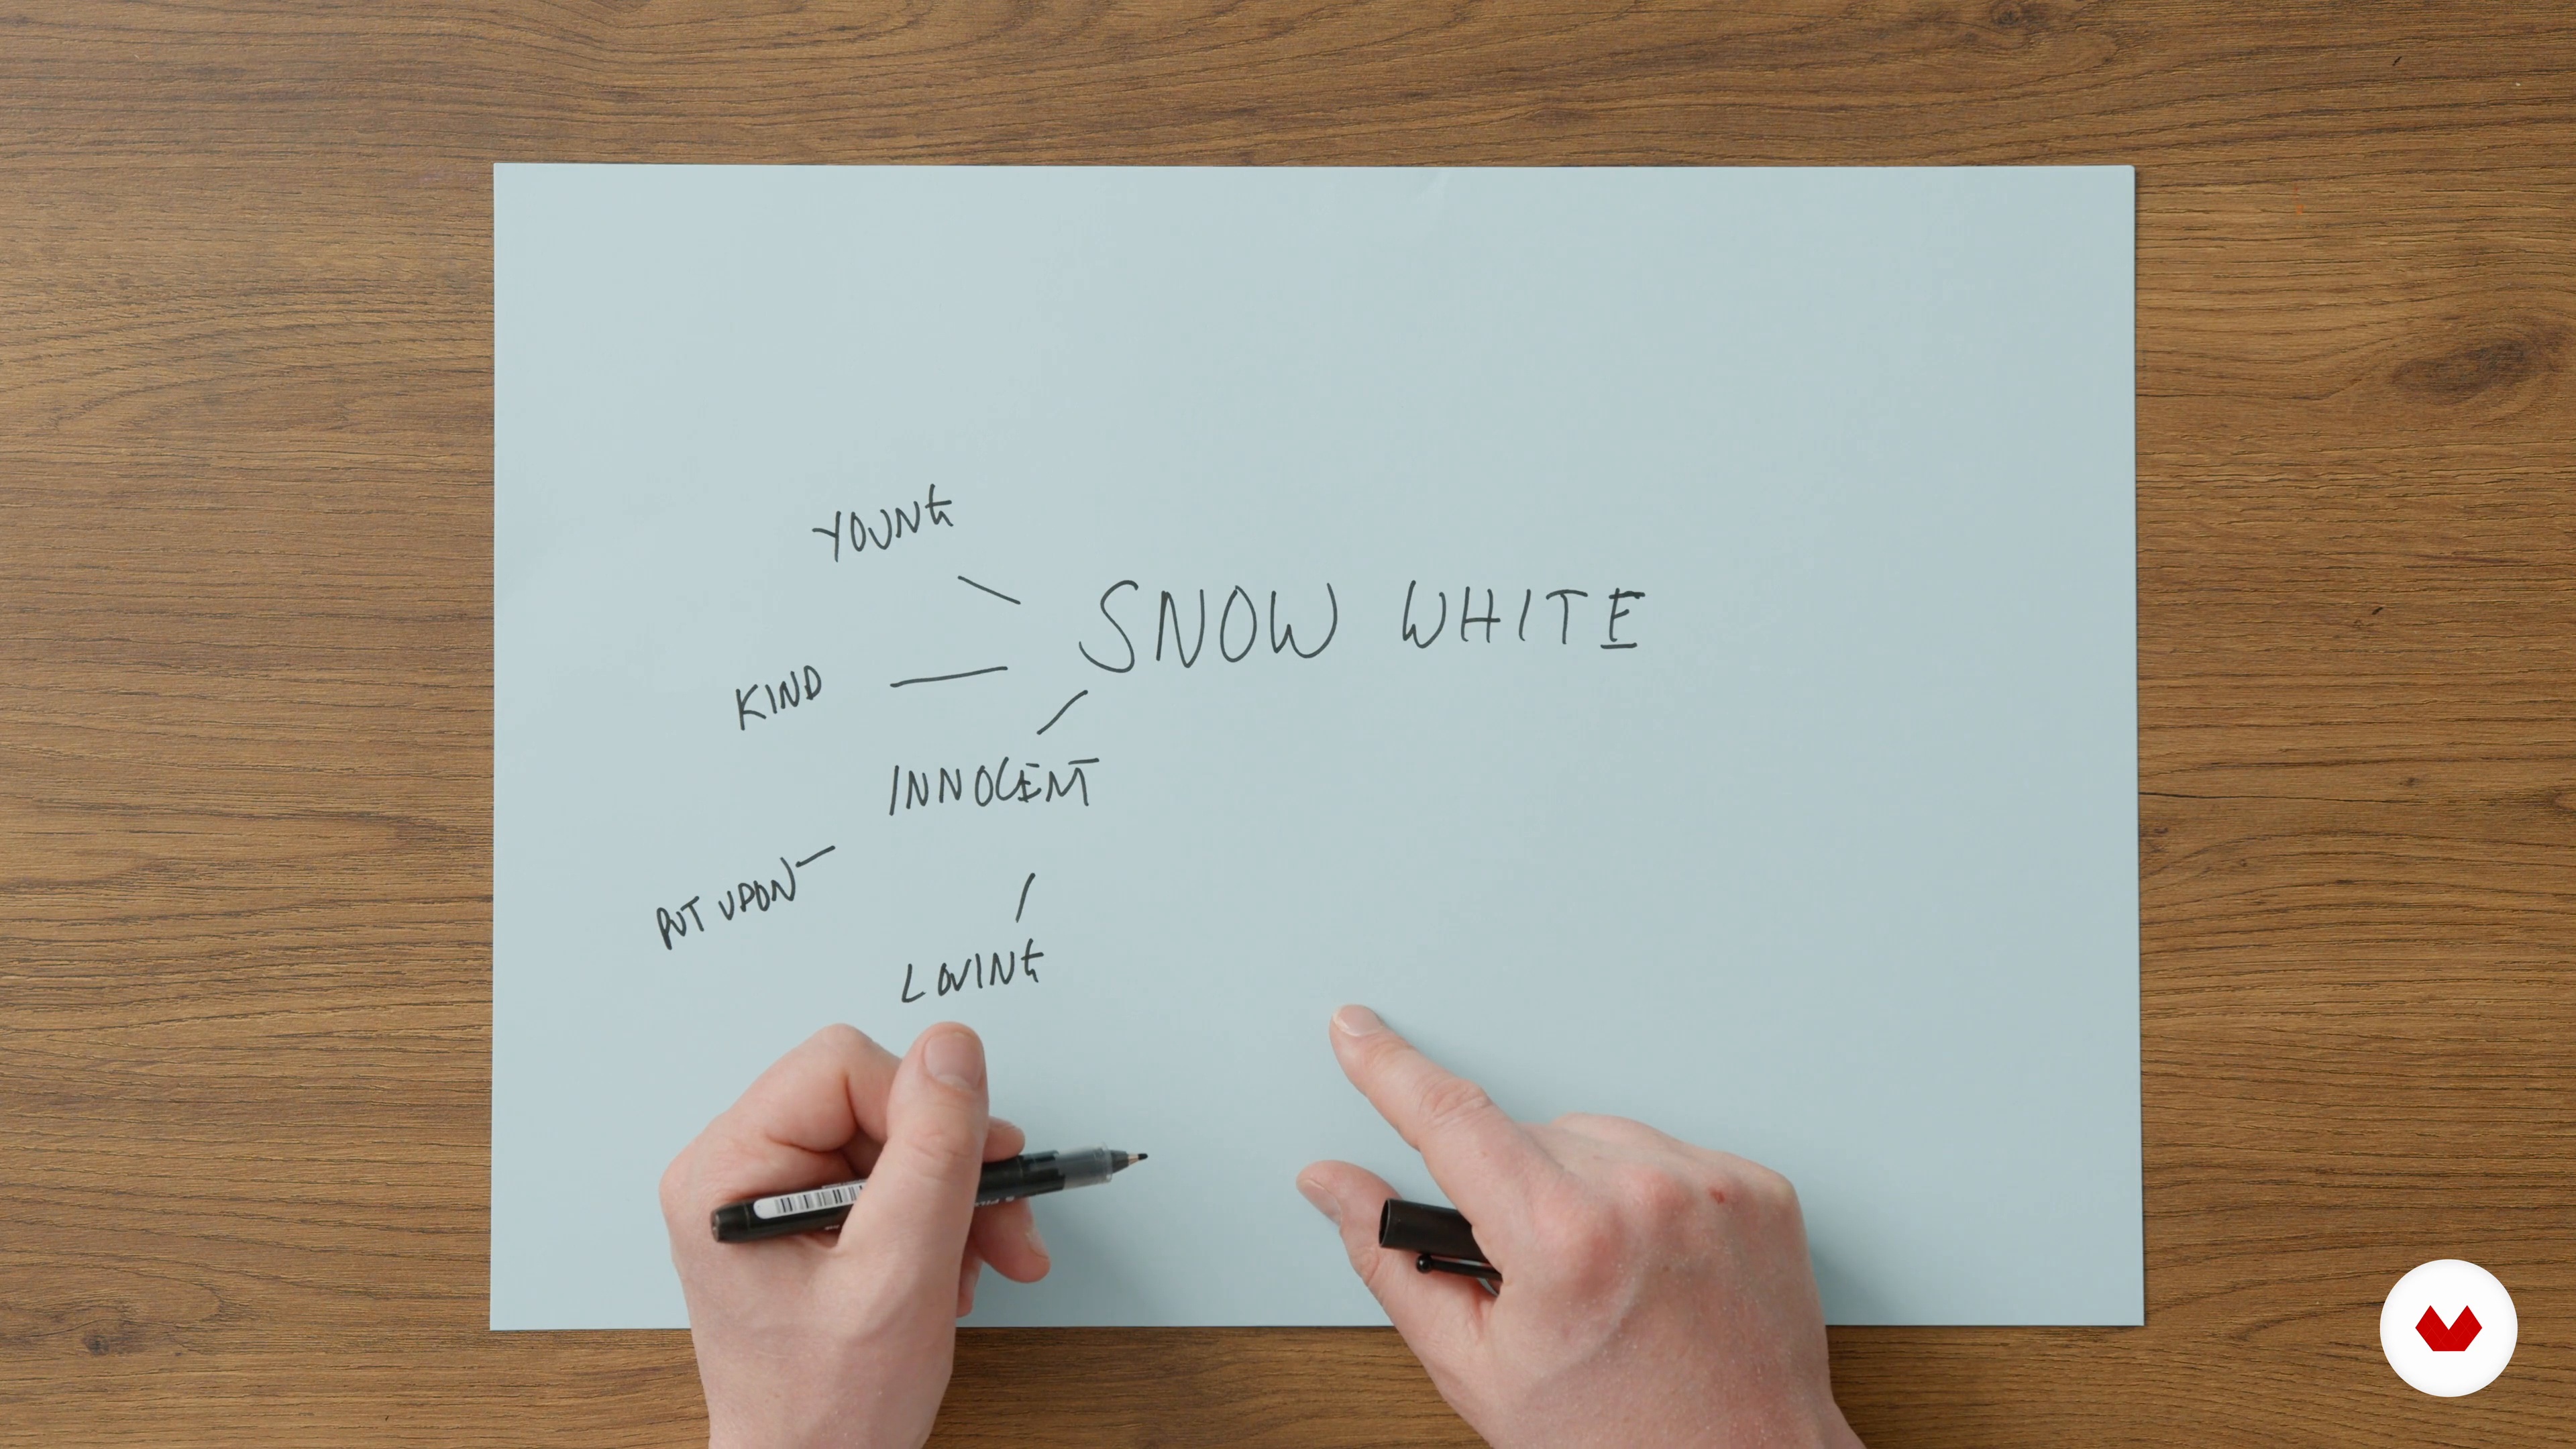 YOUNG
SNOW WHITE
KIND
INNOCENT
PUT UPON
LOVING